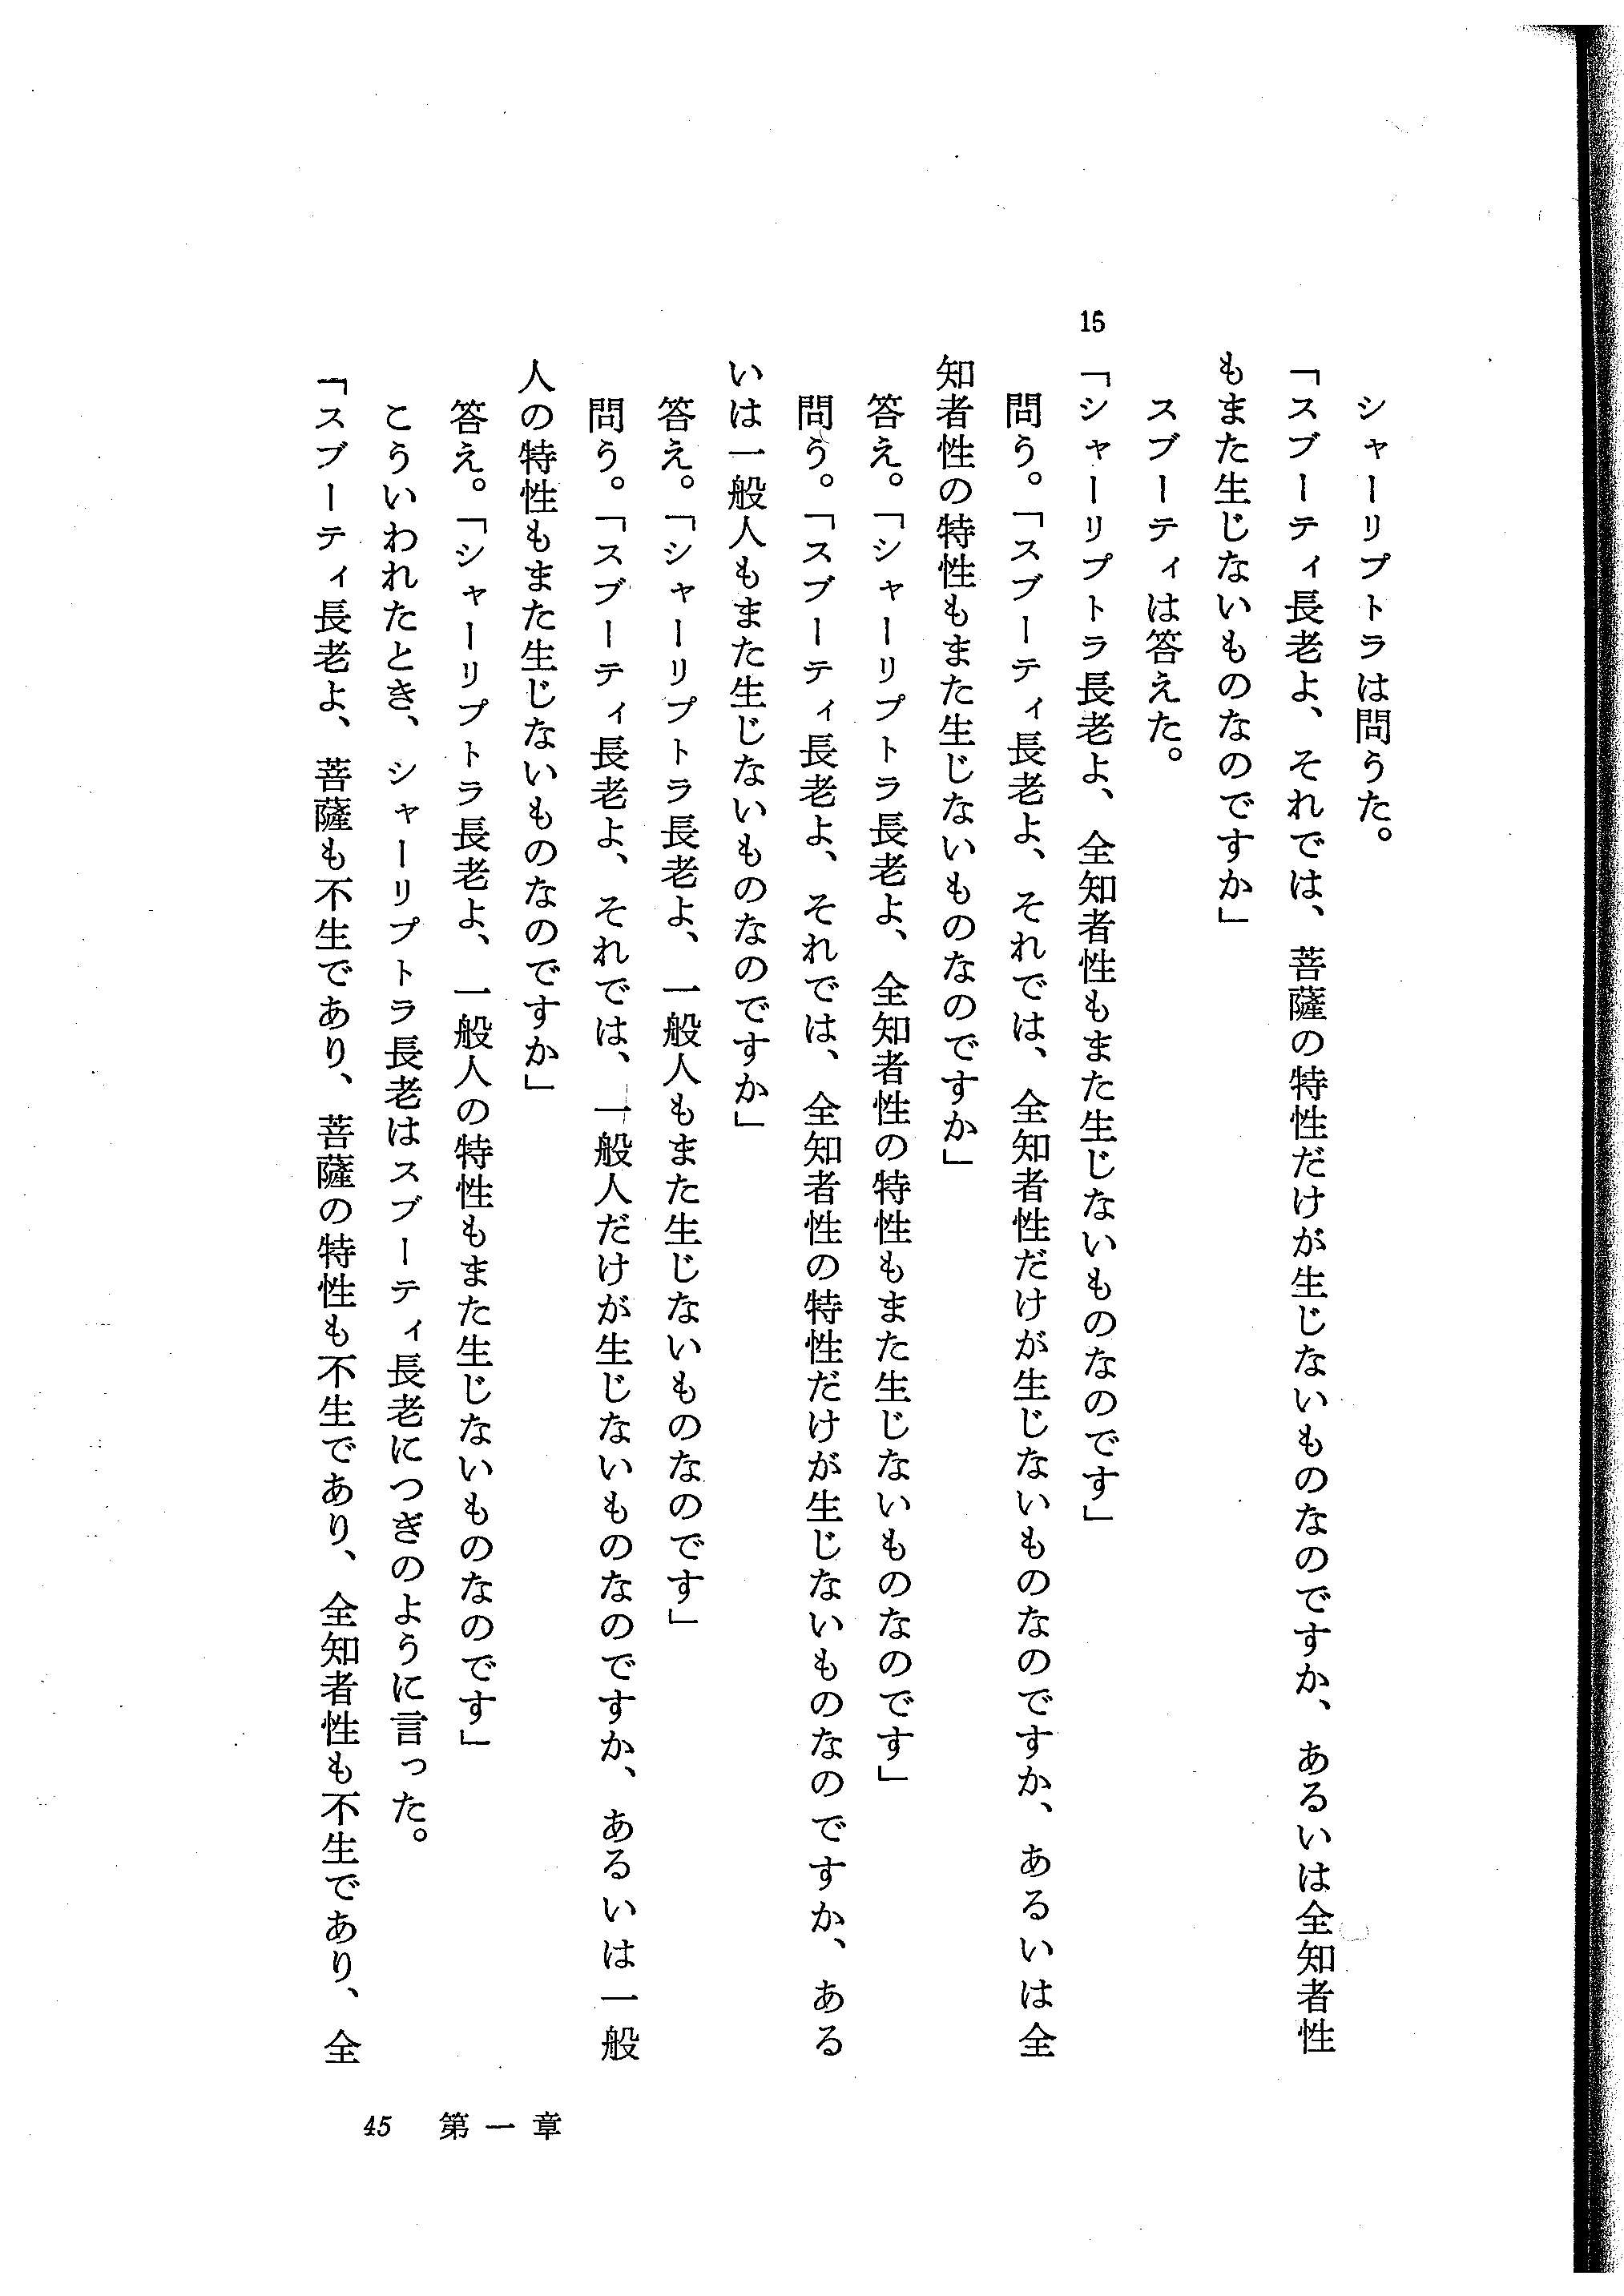 シャーリプトラは問うた。
「スブーティ長老よ、それでは、菩薩の特性だけが生じないものなのですか、あるいは全知者性
もまた生じないものなのですか」
スブーティは答えた。
15
「シャーリプトラ長老よ、全知者性もまた生じないものなのです」
問う。「スブーティ長老よ、それでは、全知者性だけが生じないものなのですか、あるいは全
知者性の特性もまた生じないものなのですか」
答え。「シャーリプトラ長老よ、全知者性の特性もまた生じないものなのです」
問う。「スブーティ長老よ、それでは、全知者性の特性だけが生じないものなのですか、ある
いは一般人もまた生じないものなのですか」
答え。「シャーリプトラ長老よ、一般人もまた生じないものなのです」
問う。「スブーティ長老よ、それでは、一般人だけが生じないものなのですか、あるいは一般
人の特性もまた生じないものなのですか」
答え。「シャーリプトラ長老よ、一般人の特性もまた生じないものなのです」
こういわれたとき、シャーリプトラ長老はスブーティ長老につぎのように言った。
「スブーティ長老よ、菩薩も不生であり、菩薩の特性も不生であり、全知者性も不生であり、全
45 第一章